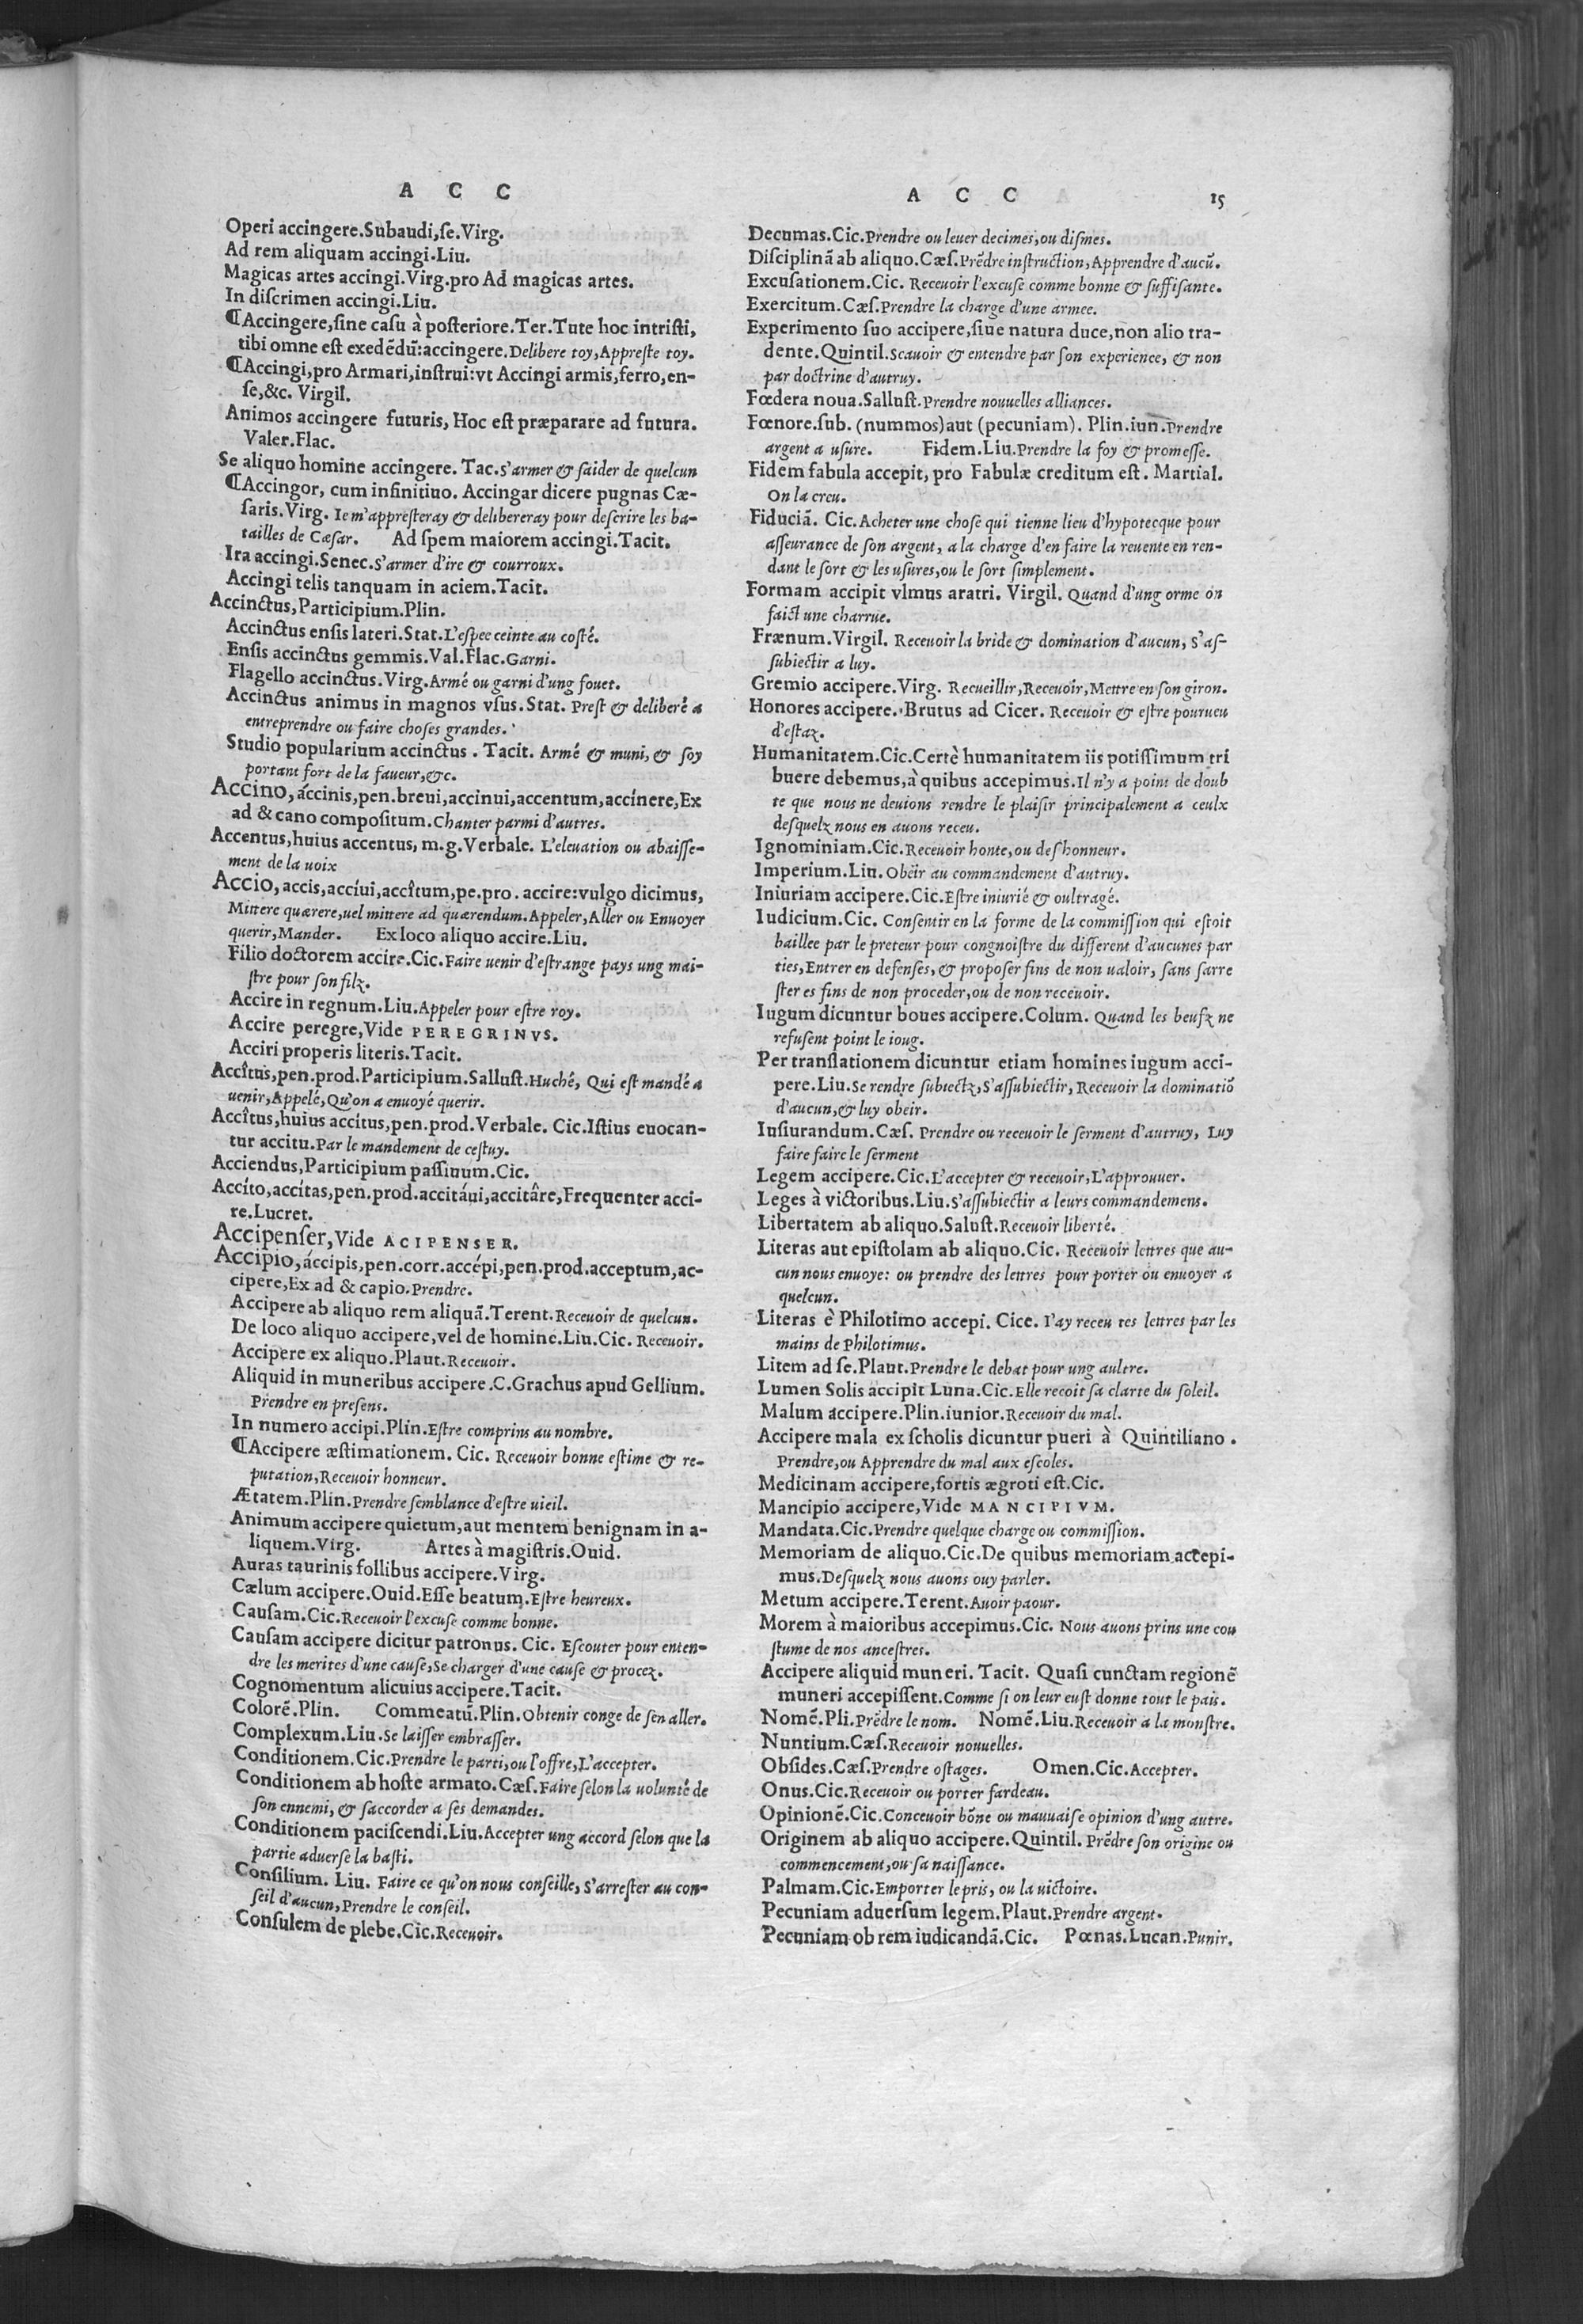 A C C
Operi accingere.Subaudi,ſe.Virg.
Ad rem aliquam accingi.Liu.
Magicas artes accingi.Virg.pro Ad magicas artes.
In diſcrimen accingi.Liu.
¶Accingere,ſine caſu à poſteriore.Ter.Tute hoc intriſti,
tibi omne eſt exedēdū:accingere.Delibere toy,Appreſte toy.
¶Accingi,pro Armari,inſtrui:vt Accingi armis,ferro,en-
ſe,&c. Virgil.
Animos accingere futuris, Hoc eſt præparare ad futura.
Valer.Flac.
Se aliquo homine accingere. Tac.S'armer & ſaider de quelcun
¶Accingor, cum infinitiuo. Accingar dicere pugnas Cæ-
ſaris.Virg. Ie m'appreſteray & delibereray pour deſcrire les ba-
tailles de Cæſar. Ad ſpem maiorem accingi.Tacit.
Ira accingi.Senec.S'armer d'ire & courroux.
Accingi telis tanquam in aciem.Tacit.
Accinctus,Participium.Plin.
Accinctus enſis lateri.Stat.L'eſpee ceinte au coſté.
Enſis accinctus gemmis.Val.Flac.Garni.
Flagello accinctus.Virg.Armé ou garni d'ung fouet.
Accinctus animus in magnos vſus.Stat. Preſt & deliberé a
entreprendre ou faire choſes grandes.
Studio popularium accinctus . Tacit. Armé & muni, & ſoy
portant fort de la faueur,&c.
Accino, áccinis,pen.breui,accinui,accentum,accínere,Ex
ad & cano compoſitum.Chanter parmi d'autres.
Accentus,huius accentus, m.g.Verbale. L'eleuation ou abaiſſe-
ment de la uoix
Accio, accis,accíui,accîtum,pe.pro. accire:vulgo dicimus,
Mittere quærere,uel mittere ad quærendum.Appeler,Aller ou Enuoyer
querir,Mander. Ex loco aliquo accire.Liu.
Filio doctorem accire.Cic.Faire uenir d'eſtrange pays ung mai-
ſtre pour ſon filz.
Accire in regnum.Liu.Appeler pour eſtre roy.
Accire peregre,Vide PEREGRINVS.
Acciri properis literis.Tacit.
Accîtus,pen.prod.Participium.Salluſt.Huché, Qui eſt mandé a
uenir,Appelé,Qu'on a enuoyé querir.
Accîtus,huius accitus,pen.prod.Verbale. Cic.Iſtius euocan-
tur accitu.Par le mandement de ceſtuy.
Acciendus,Participium paſſiuum.Cic.
Accíto,accítas,pen.prod.accitáui,accitâre,Frequenter acci-
re.Lucret.
Accipenſer,Vide ACIPENSER.
Accipio,áccipis,pen.corr.accépi,pen.prod.acceptum,ac-
cipere,Ex ad & capio.Prendre.
Accipere ab aliquo rem aliquā.Terent.Receuoir de quelcun.
De loco aliquo accipere,vel de homine.Liu.Cic. Receuoir.
Accipere ex aliquo.Plaut.Receuoir.
Aliquid in muneribus accipere.C.Grachus apud Gellium.
Prendre en preſens.
In numero accipi.Plin.Eſtre comprins au nombre.
¶Accipere æſtimationem. Cic. Receuoir bonne eſtime & re-
putation,Receuoir honneur.
Ætatem.Plin.Prendre ſemblance d'eſtre uieil.
Animum accipere quietum,aut mentem benignam in a-
liquem.Virg. Artes à magiſtris.Ouid.
Auras taurinis follibus accipere.Virg.
Cælum accipere.Ouid.Eſſe beatum.Eſtre heureux.
Cauſam.Cic.Receuoir l'excuſe comme bonne.
Cauſam accipere dicitur patronus. Cic. Eſcouter pour enten-
dre les merites d'une cauſe,Se charger d'une cauſe & procez.
Cognomentum alicuius accipere.Tacit.
Colorē.Plin. Commeatū.Plin.Obtenir conge de ſen aller.
Complexum.Liu.Se laiſſer embraſſer.
Conditionem.Cic.Prendre le parti,ou l'offre,L'accepter.
Conditionem ab hoſte armato.Cæſ.Faire ſelon la uolunté de
ſon ennemi, & ſaccorder a ſes demandes.
Conditionem paciſcendi.Liu.Accepter ung accord ſelon que la
partie aduerſe la baſti.
Conſilium. Liu. Faire ce qu'on nous conſeille, S'arreſter au con-
ſeil d'aucun,Prendre le conſeil.
Conſulem de plebe.Cic.Receuoir.
A C C 15
Decumas.Cic.Prendre ou leuer decimes,ou diſmes.
Diſciplinā ab aliquo.Cæſ.Prēdre inſtruction,Apprendre d'aucū.
Excuſationem.Cic. Receuoir l'excuſe comme bonne & ſuffiſante.
Exercitum.Cæſ.Prendre la charge d'une armee.
Experimento ſuo accipere,ſiue natura duce,non alio tra-
dente.Quintil.Scauoir & entendre par ſon experience, & non
par doctrine d'autruy.
Fœdera noua.Salluſt.Prendre nouuelles alliances.
Fœnore.ſub. (nummos)aut (pecuniam). Plin.iun.Prendre
argent a uſure. Fidem.Liu.Prendre la foy & promeſſe.
Fidem fabula accepit, pro Fabulæ creditum eſt. Martial.
On la creu.
Fiduciā. Cic.Acheter une choſe qui tienne lieu d'hypotecque pour
aſſeurance de ſon argent, a la charge d'en faire la reuente en ren-
dant le ſort & les uſures,ou le ſort ſimplement.
Formam accipit vlmus aratri. Virgil. Quand d'ung orme on
faict une charrue.
Frænum.Virgil. Receuoir la bride & domination d'aucun, S'aſ-
ſubiectir a luy.
Gremio accipere.Virg. Recueillir,Receuoir,Mettre en ſon giron.
Honores accipere. Brutus ad Cicer. Receuoir & eſtre pourueu
d'eſtaz.
Humanitatem.Cic.Certè humanitatem iis potiſſimum tri
buere debemus,à quibus accepimus.Il n'y a point de doub
te que nous ne deuions rendre le plaiſir principalement a ceulx
deſquelz nous en auons receu.
Ignominiam.Cic.Receuoir honte,ou deſhonneur.
Imperium.Liu.Obëir au commandement d'autruy.
Iniuriam accipere.Cic.Eſtre iniurié & oultragé.
Iudicium.Cic. Conſentir en la forme de la commiſſion qui eſtoit
baillee par le preteur pour congnoiſtre du different d'aucunes par
ties,Entrer en defenſes, & propoſer fins de non ualoir, ſans ſarre
ſter es fins de non proceder,ou de non receuoir.
Iugum dicuntur boues accipere.Colum. Quand les beufz ne
refuſent point le ioug.
Per tranſlationem dicuntur etiam homines iugum acci-
pere.Liu.Se rendre ſubiectz,S'aſſubiectir, Receuoir la dominatiō
d'aucun,& luy obëir.
Iuſiurandum.Cæſ. Prendre ou receuoir le ſerment d'autruy, Luy
faire faire le ſerment
Legem accipere.Cic.L'accepter & receuoir,L'approuuer.
Leges à victoribus.Liu.S'aſſubiectir a leurs commandemens.
Libertatem ab aliquo.Saluſt.Receuoir liberté.
Literas aut epiſtolam ab aliquo.Cic. Receuoir lettres que au-
cun nous enuoye: ou prendre des lettres pour porter ou enuoyer a
quelcun.
Literas è Philotimo accepi. Cice. I'ay receu tes lettres par les
mains de Philotimus.
Litem ad ſe.Plaut.Prendre le debat pour ung aultre.
Lumen Solis accipit Luna.Cic.Elle recoit ſa clarte du ſoleil.
Malum accipere.Plin.iunior.Receuoir du mal.
Accipere mala ex ſcholis dicuntur pueri à Quintiliano .
Prendre,ou Apprendre du mal aux eſcoles.
Medicinam accipere,fortis ægroti eſt.Cic.
Mancipio accipere,Vide MANCIPIVM.
Mandata.Cic.Prendre quelque charge ou commiſſion.
Memoriam de aliquo.Cic.De quibus memoriam accepi-
mus.Deſquelz nous auons ouy parler.
Metum accipere.Terent.Auoir paour.
Morem à maioribus accepimus.Cic. Nous auons prins une cou
ſtume de nos anceſtres.
Accipere aliquid muneri. Tacit. Quaſi cunctam regionē
muneri accepiſſent.Comme ſi on leur euſt donne tout le pais.
Nomē.Pli.Prēdre le nom. Nomē.Liu.Receuoir a la monſtre.
Nuntium.Cæſ.Receuoir nouuelles.
Obſides.Cæſ.Prendre oſtages. Omen.Cic.Accepter.
Onus.Cic.Receuoir ou porter fardeau.
Opinionē.Cic.Conceuoir bōne ou mauuaiſe opinion d'ung autre.
Originem ab aliquo accipere.Quintil. Prēdre ſon origine ou
commencement,ou ſa naiſſance.
Palmam.Cic.Emporter le pris, ou la uictoire.
Pecuniam aduerſum legem.Plaut.Prendre argent.
Pecuniam ob rem iudicandā.Cic. Pœnas.Lucan.Punir.